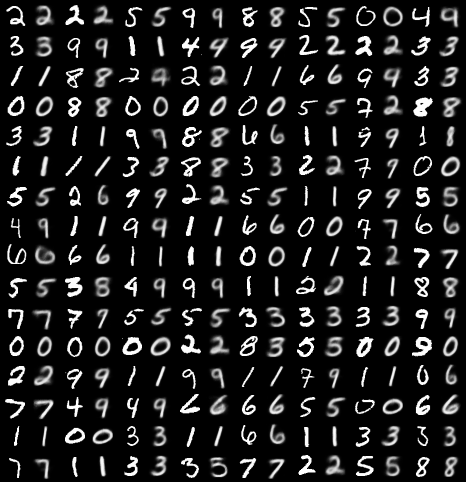 2 2 2 2 5 5 9 9 8 8 5 5 0 0 4 9
3 3 9 9 1 1 4 4 9 9 2 2 2 2 3 3
1 1 8 8 2 9 2 2 1 1 6 6 9 4 3 3
0 0 8 8 0 0 0 0 0 0 5 5 7 2 8 8
3 3 1 1 9 9 8 8 6 6 1 1 9 9 1 8
1 1 1 1 3 3 8 8 3 3 2 2 7 9 0 0
5 5 2 6 9 9 2 2 5 5 1 1 9 9 5 5
4 9 1 1 9 9 1 1 6 6 0 0 7 7 6 6
6 6 6 6 1 1 1 1 0 0 1 1 2 2 7 7
5 5 3 8 4 9 9 9 1 1 2 2 1 1 8 8
7 7 7 9 5 5 5 5 3 3 3 3 3 3 9 9
0 0 0 0 0 0 2 2 8 3 5 5 0 0 9 0
2 2 9 9 1 1 9 9 1 1 7 9 1 1 0 6
7 7 4 9 4 9 6 6 6 6 5 5 0 0 6 6
1 1 0 0 3 3 1 1 6 6 1 1 3 3 3 3
7 7 1 1 3 3 3 5 7 7 2 2 5 5 8 8